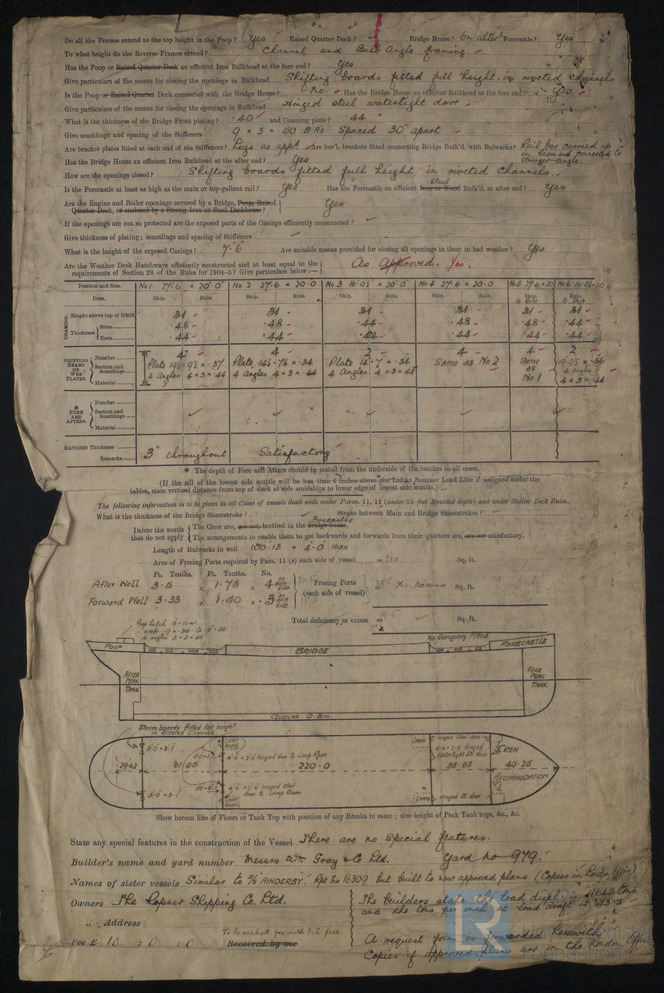 Do all the Frames extend to the top height in the Poop? Yes Raised Quarter Deck? Bridge House? Forecastle? Yes
To what height do the Reverse Frames extend? Channel and Bulb Angle framing
Has the Poop or Raised Quarter Deck an efficient Iron Bulkhead at the fore end? Yes
Give particulars of the means for closing the openings in Bulkhead Shifting boards fitted full height in riveted channels
Is the Poop or Raised Quarter Deck connected with the Bridge House? No Has the Bridge House an efficient Bulkhead at the fore end? Yes
Give particulars of the means for closing the openings in Bulkhead Hinged steel watertight door
What is the thickness of the Bridge Front plating? .40 and Coaming plate? .44
Give scantlings and spacing of the Stiffeners 9 × 3 × .50 B As Spaced 30" apart
Are bracket plates fitted at each end of the Stiffeners? Lugs as appd. Are hor'l. brackets fitted connecting Bridge Bulk'd. with Bulwarks? Rail bar carried up
Has the Bridge House an efficient Iron Bulkhead at the after end? Yes
How are the openings closed? Shifting boards fitted full height in riveted channels.
Is the Forecastle at least as high as the main or top-gallant rail? Yes Has the Forecastle an efficient Steel Iron or Wood Bulk'd. at after end? Yes
Are the Engine and Boiler openings covered by a Bridge, Poop, Raised Quarter Deck, or enclosed by a Strong Iron or Steel Deckhouse? Yes
If the openings are not so protected are the exposed parts of the Casings efficiently constructed?
Give thickness of plating; scantlings and spacing of Stiffeners
What is the height of the exposed Casings? 7.6 Are suitable means provided for closing all openings in them in bad weather? Yes
Are the Weather Deck Hatchways efficiently constructed and at least equal to the requirements of Section 28 of the Rules for 1904-5? Give particulars below:— As Approved. Yes.
Position and Size. No 1 27.6 × 20.0 No 2 27.6 × 20.0 No 3 16.0½ × 20.0 No 4 27.6 × 20.0 No 5 27.6 × 20 No 6 16.0½ × 20.0
Item. Ship. Rule. Ship. Rule. Ship. Rule. Ship. Rule.
COAMING. Height above top of DECK 31 31 31 31 31 31
Thickness Sides .48 .48 .44 .48 .48 .44
Ends .44 .44 .44 .44 .44 .44
SHIFTING BEAMS OR WEB PLATES. Number 4 4 2 4 4 2
Section and Scantlings Same as No 2 Same as No 1
4 Angles 4 × 3 × .44
Material
FORE AND AFTERS. Number
Section and Scantlings
Material
HATCHES Thickness 3" throughout Satisfactory
Remarks
* The depth of Fore and Afters should be stated from the underside of the hatches in all cases.
(If the sill of the lowest side scuttle will be less than 6 inches above the Indian Summer Load Line if assigned under the
tables, state vertical distance from top of deck at side amidships to lower edge of lowest side scuttle.)
The following information is to be given in all Cases of vessels dealt with under Paras. 11, 12 (under 15 feet Moulded depth) and under Shelter Deck Rules.
What is the thickness of the Bridge Sheerstrake? Strake between Main and Bridge Sheerstrakes?
Delete the words that do not apply
The Crew are, are not, berthed in the bridge house. Forecastle
The arrangements to enable them to get backwards and forwards from their quarters are, are not satisfactory.
Length of Bulwarks in well 100.13 × 4.0 High
Area of Freeing Ports required by Para. 11 (e) each side of vessel = Sq. ft.
Ft. Tenths. Ft. Tenths. No.
After Well 3.5 × 1.75 × 4 Freeing Ports (each side of vessel) Sq. ft.
Forward Well 3.33 × 1.50 × 3
Total deficiency or excess = Sq. ft.
No Gangway fitted
POOP BRIDGE FORECASTLE
AFTER PEAK TANK FORE PEAK TANK
CELLULAR D. Btm.
Storm boards fitted full height in Riveted Channels
29.42 61.55 220.0 38.58 40.25
CREW ACCOMMODATION
Show hereon line of Floors or Tank Top with position of any Breaks in same; also height of Peak Tank tops, &c., &c.
State any special features in the construction of the Vessel There are no special features.
Builder's name and yard number Messrs Wm. Gray & Co Ltd. Yard No 979.
Names of sister vessels Similar to S/S AINDERBY. Rpt No 16309 but built to new approved plans (Copies in London Office)
Owners The Ropner Shipping Co. Ltd. The Builders state the load displ.
" Address and the tons per inch at load draft
Fee £ 10 : 0 : 0 Received by me A request form is forwarded herewith
Copies of approved plans are in the London Office